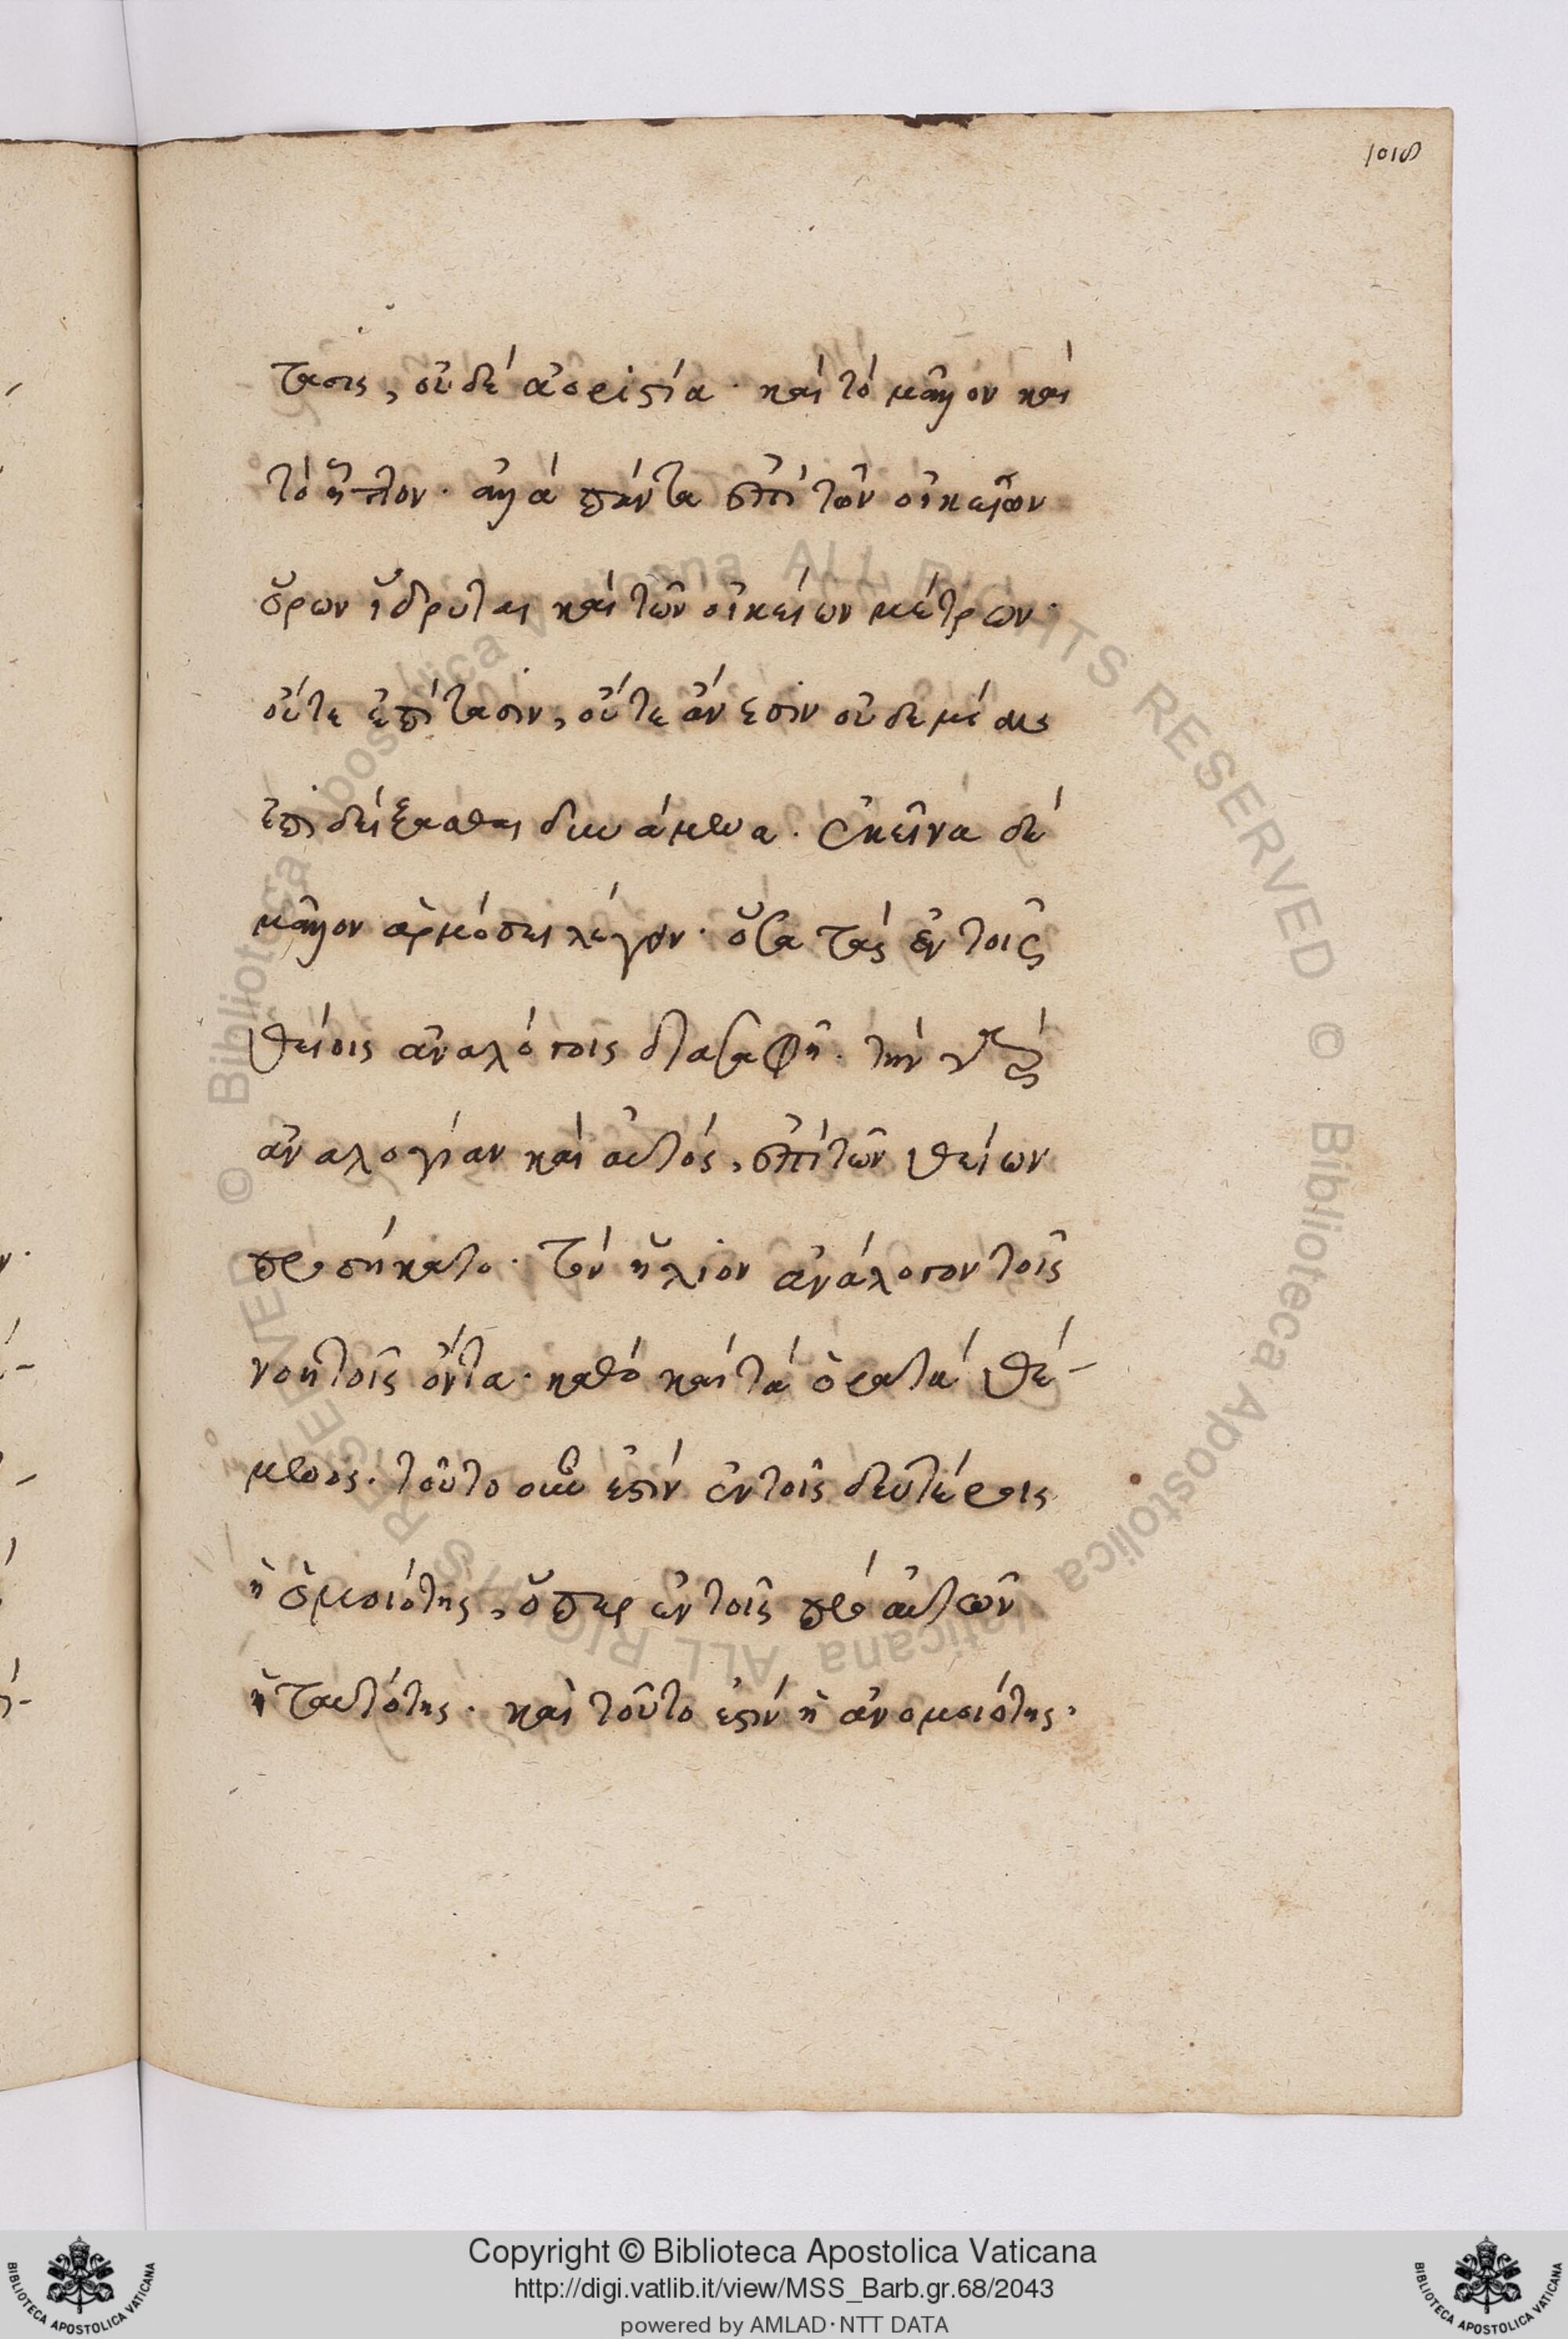 1018
τασις, οὐδὲ ἀοριστία· καὶ τὸ μᾶλλον καὶ
τὸ ἧττον· ἀλλὰ πάντα ἐπὶ τῶν οἰκείων
ὅρων ἵδρυται καὶ τῶν οἰκείων μέτρων·
οὔτε ἐπίτασιν, οὔτε ἄνεσιν οὐδεμίαν
ἐπιδείξασθαι δυνάμενα. ἐκεῖνα δὲ
μᾶλλον ἁρμόσει λέγειν· ὅτα τὰς ἐν τοῖς
θείοις ἀναλόγοις διαταφῇ· τὴν
ἀναλογίαν καὶ αὐτός, ἐπὶ τῶν θείων
προσήκατο· τὸν ἥλιον ἀνάλογον τοῖς
νοητοῖς ὄντα· καθὸ καὶ τὰ ὁρατὰ θέ-
μενος· τοῦτο οὖν ἐστὶν ἐν τοῖς δευτέροις
ἡ ὁμοιότης, ὅπερ ἐν τοῖς πρὸ αὐτῶν
ἡ ταυτότης· καὶ τοῦτο ἐστὶν ἡ ἀνομοιότης·
Copyright © Biblioteca Apostolica Vaticana
http://digi.vatlib.it/view/MSS_Barb.gr.68/2043
powered by AMLAD·NTT DATA
© Biblioteca Apostolica Vaticana ALL RIGHTS RESERVED © Biblioteca Apostolica Vaticana ALL RIGHTS RESERVED
BIBLIOTECA APOSTOLICA VATICANA
BIBLIOTECA APOSTOLICA VATICANA